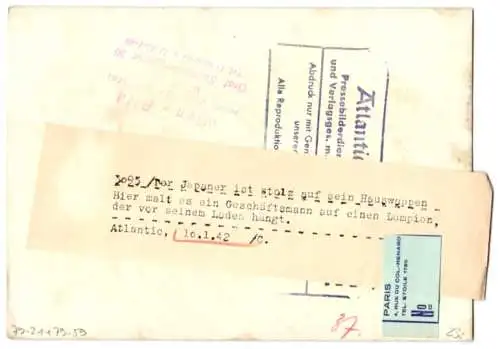 Atlantic
Pressebilderdien
und Verlagsges. m.
Abdruck nur mit Gen
unserer
Alle Reproduktio
3025/Der Japaner ist stolz auf sein Hauswappen
Hier malt es ein Geschäftsmann auf einen Lampion,
der vor seinem Laden hängt.
Atlantic, 10.1.42 /C.
PARIS
4, RUE DU COL-RENARD
TEL. ETOILE 1786
No
87.
79-21+79-59